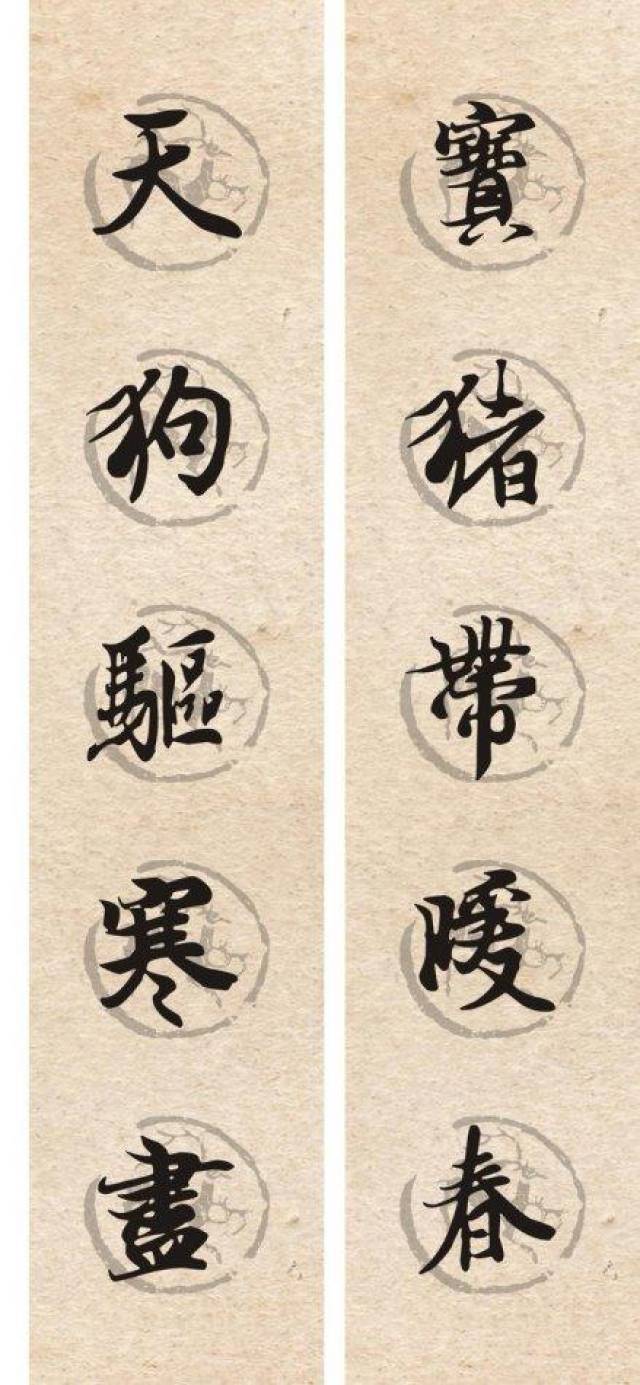 天狗驅寒盡
寶猪帶暖春